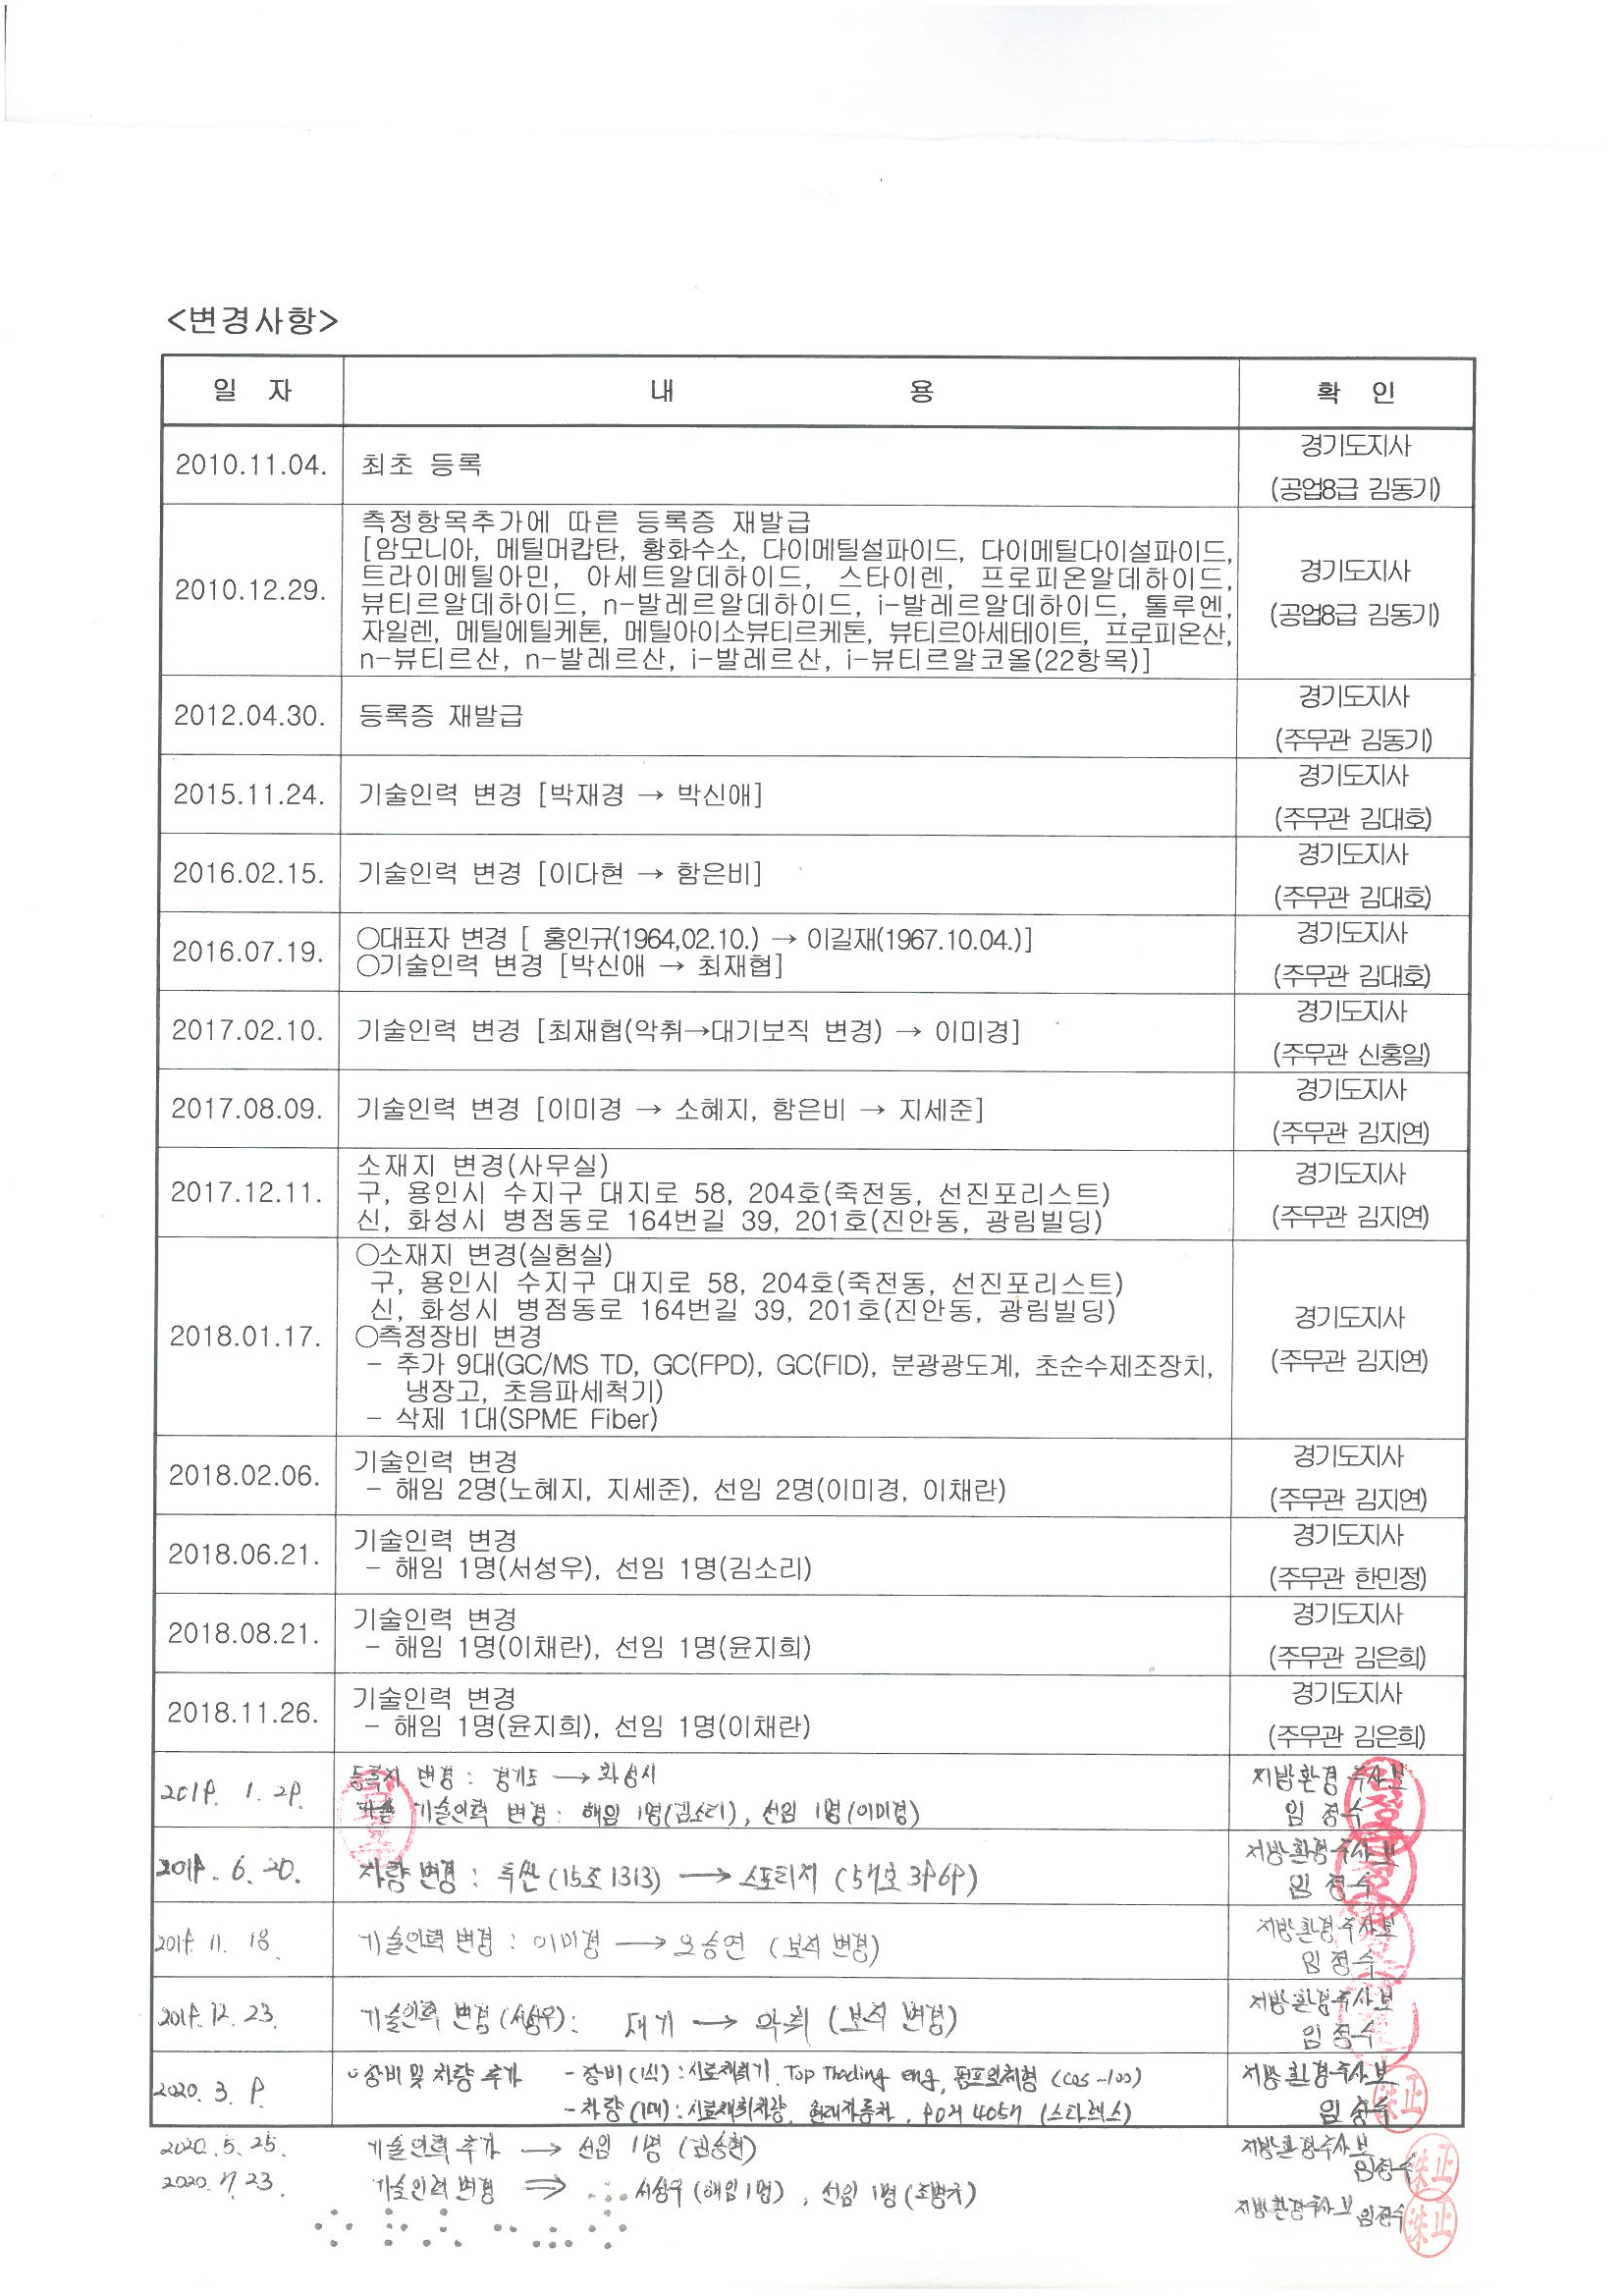 <변경사항>
일 자 내 용 확 인
2010.11.04. 최초 등록 경기도지사
(공업8급 김동기)
2010.12.29. 측정항목추가에 따른 등록증 재발급
[암모니아, 메틸머캅탄, 황화수소, 다이메틸설파이드, 다이메틸다이설파이드,
트라이메틸아민, 아세트알데하이드, 스타이렌, 프로피온알데하이드,
뷰티르알데하이드, n-발레르알데하이드, i-발레르알데하이드, 톨루엔,
자일렌, 메틸에틸케톤, 메틸아이소뷰티르케톤, 뷰티르아세테이트, 프로피온산,
n-뷰티르산, n-발레르산, i-발레르산, i-뷰티르알코올(22항목)]
경기도지사
(공업8급 김동기)
2012.04.30. 등록증 재발급 경기도지사
(주무관 김동기)
2015.11.24. 기술인력 변경 [박재경 → 박신애] 경기도지사
(주무관 김대호)
2016.02.15. 기술인력 변경 [이다현 → 함은비] 경기도지사
(주무관 김대호)
2016.07.19. ○대표자 변경 [ 홍인규(1964,02.10.) → 이길재(1967.10.04.)]
○기술인력 변경 [박신애 → 최재협]
경기도지사
(주무관 김대호)
2017.02.10. 기술인력 변경 [최재협(악취→대기보직 변경) → 이미경] 경기도지사
(주무관 신홍일)
2017.08.09. 기술인력 변경 [이미경 → 소혜지, 함은비 → 지세준] 경기도지사
(주무관 김지연)
2017.12.11. 소재지 변경(사무실)
구, 용인시 수지구 대지로 58, 204호(죽전동, 선진포리스트)
신, 화성시 병점동로 164번길 39, 201호(진안동, 광림빌딩)
경기도지사
(주무관 김지연)
2018.01.17. ○소재지 변경(실험실)
구, 용인시 수지구 대지로 58, 204호(죽전동, 선진포리스트)
신, 화성시 병점동로 164번길 39, 201호(진안동, 광림빌딩)
○측정장비 변경
- 추가 9대(GC/MS TD, GC(FPD), GC(FID), 분광광도계, 초순수제조장치,
냉장고, 초음파세척기)
- 삭제 1대(SPME Fiber)
경기도지사
(주무관 김지연)
2018.02.06. 기술인력 변경
- 해임 2명(노혜지, 지세준), 선임 2명(이미경, 이채란)
경기도지사
(주무관 김지연)
2018.06.21. 기술인력 변경
- 해임 1명(서성우), 선임 1명(김소리)
경기도지사
(주무관 한민정)
2018.08.21. 기술인력 변경
- 해임 1명(이채란), 선임 1명(윤지희)
경기도지사
(주무관 김은희)
2018.11.26. 기술인력 변경
- 해임 1명(윤지희), 선임 1명(이채란)
경기도지사
(주무관 김은희)
2019. 1. 29. 등록지 변경 : 경기도 → 화성시
기술인력 변경 : 해임 1명(김소리), 선임 1명(이미경)
지방환경주사보
임 정수
2019. 6. 20. 차량 변경 : 투싼 (15조 1313) → 스포티지 (57호 3969)
지방환경주사보
임 정수
2019. 11. 18. 기술인력 변경 : 이미경 → 오승연 (보직 변경)
지방환경주사보
임 정수
2019. 12. 23. 기술인력 변경 (서성우) : 대기 → 악취 (보직 변경)
지방환경주사보
임 정수
2020. 3. 9. ◦ 장비 및 차량 추가 - 장비(1식) : 시료채취기, Top Trading eng, 펌프일체형 (COS-100)
- 차량 (1대) : 시료채취차량, 현대자동차, 4057 (스타렉스)
지방환경주사보
임 정수
2020. 5. 25. 기술인력 추가 → 선임 1명
지방환경주사보
임정수
2020. 7. 23. 기술인력 변경 ⇒ 서성우 (해임 1명), 선임 1명
지방환경주사보 임정수